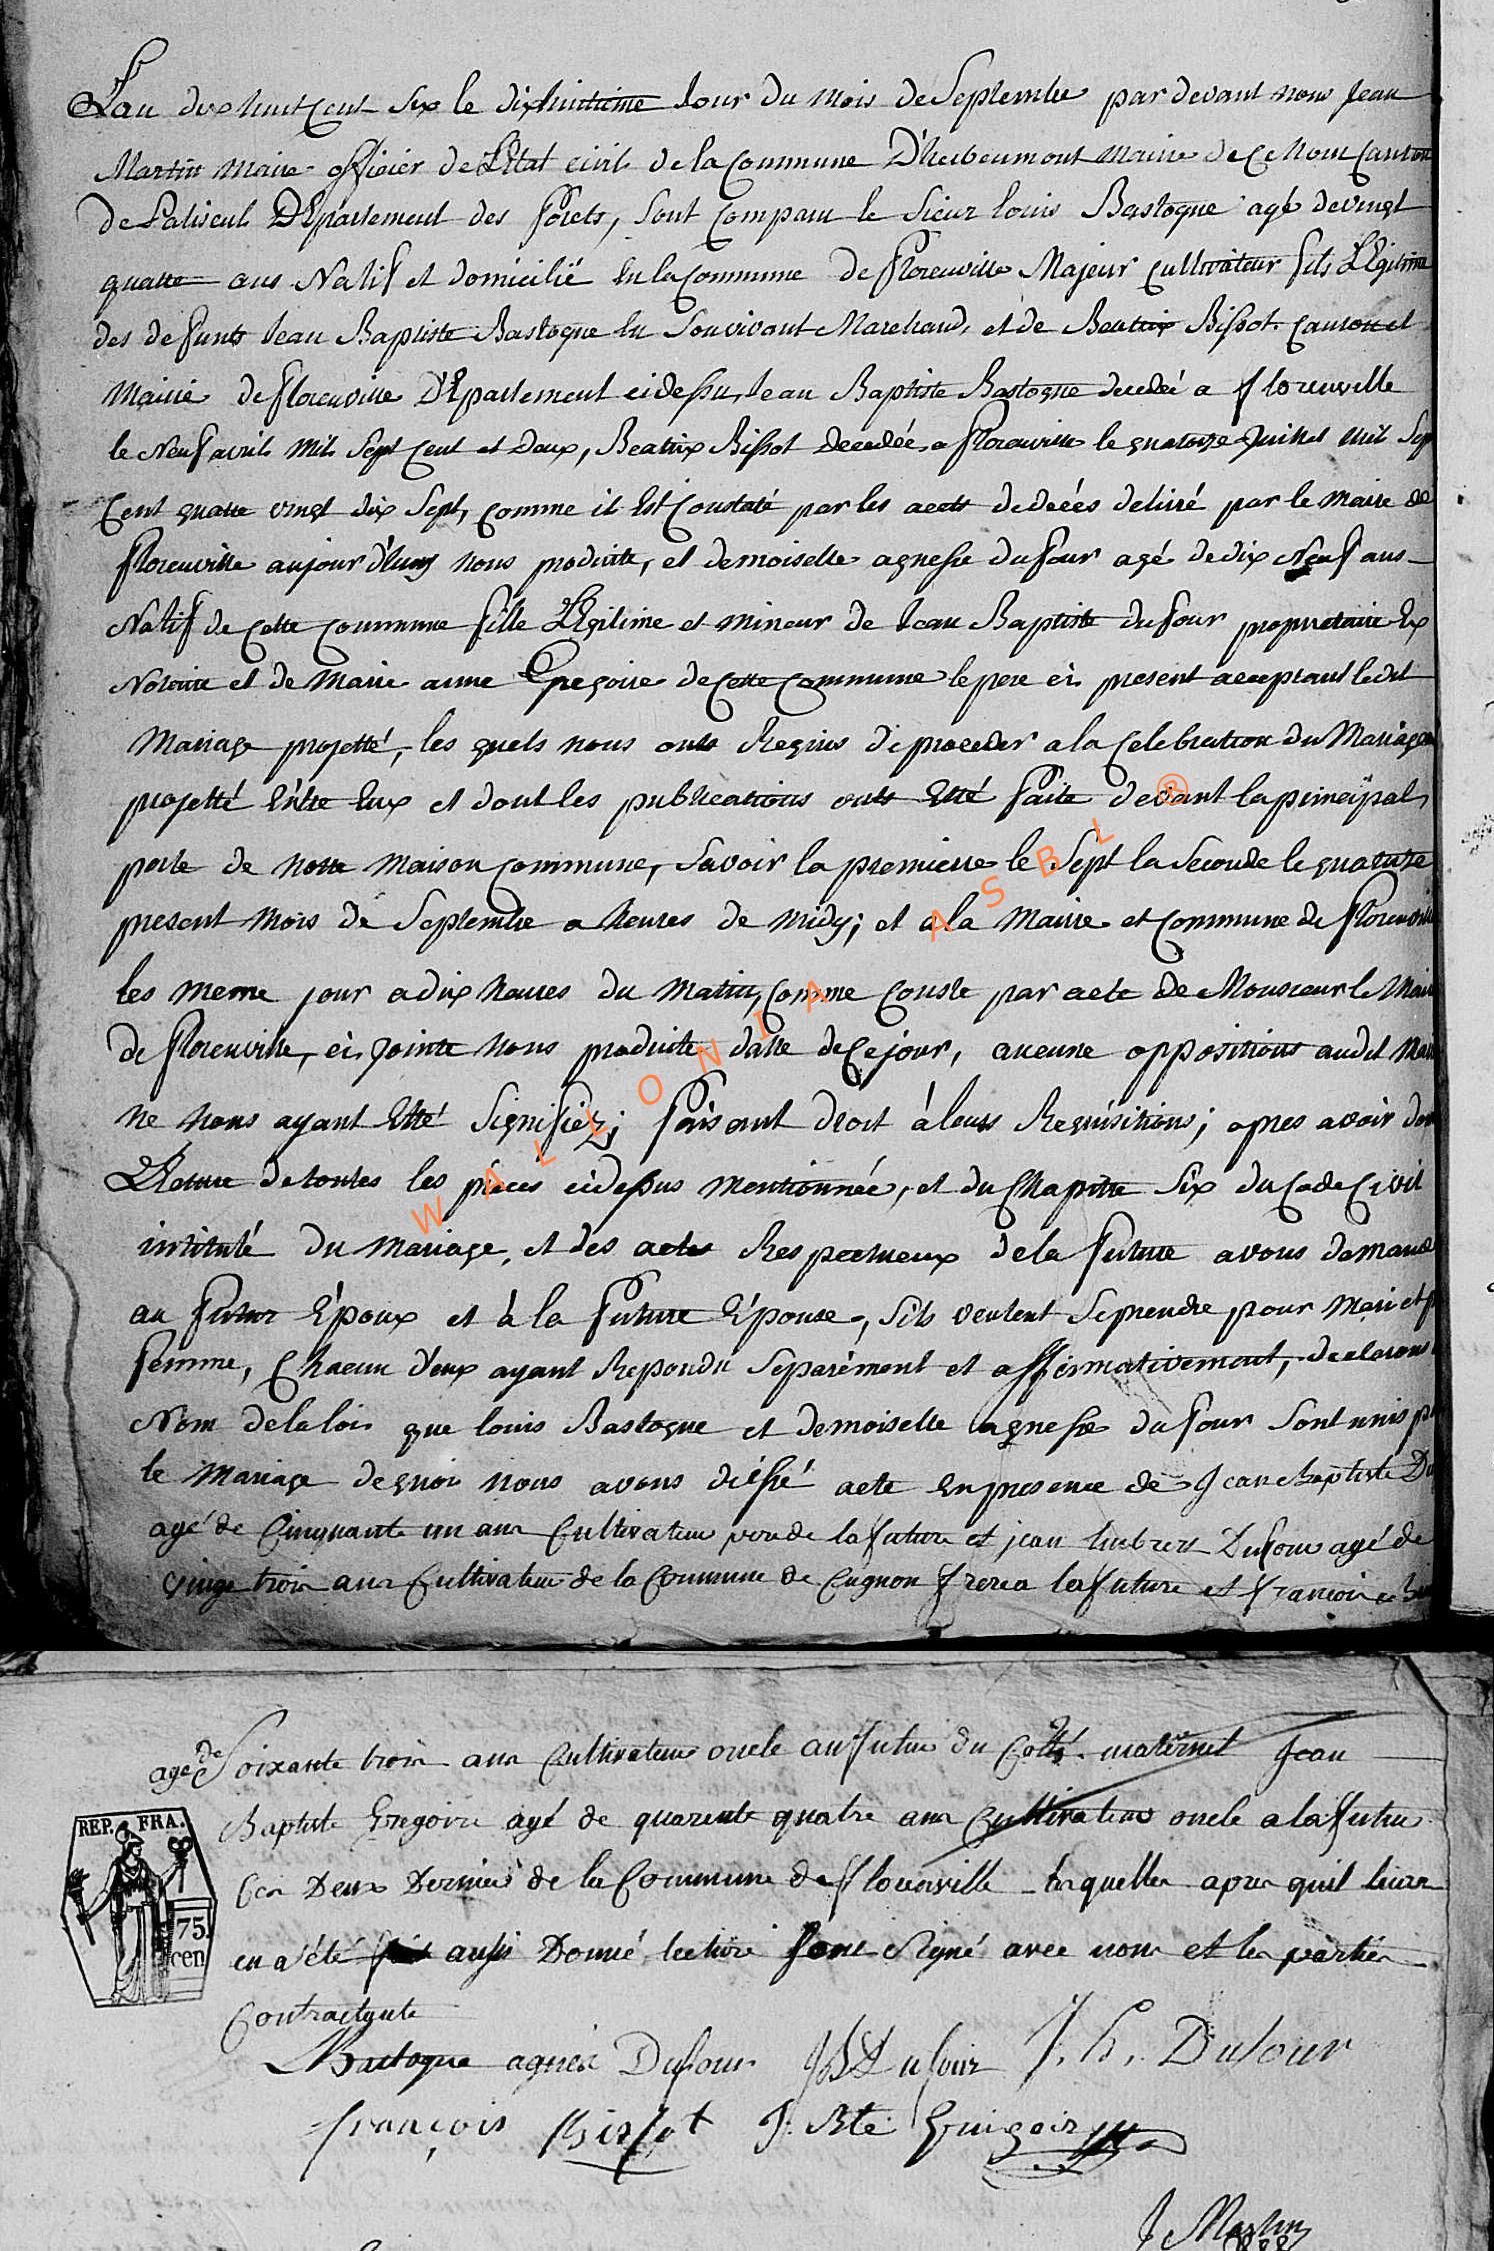 L'an dix huit Cent Six le dixhuitieme Jour du Mois de Septembre par devant nous Jean
Martin Maire officier de L'Etat civil de la Commune D'herbeumont Mairie de Ce Nom Canton
de Paliseul DEpartement des forets, sont Comparu le Sieur louis Bastogne agé de vingt
quatre ans Natif et domicilié En la Commune de florenville Majeur Cultivateur fils LEgitime
des defunts Jean Baptiste Bastogne En Son vivant Marchand, et de Beatrix Bissot. Canton et
Mairie de florenville DEpartement cidessu, Jean Baptiste Bastogne decedeé a florenville
le Neuf avril Mil Sept Cent et Doux, Beatrix Bissot Decedée a florenville le quatorze Juillet Mil Sep
Cent quatre vingt dix Sept, comme il Est Constaté par les acets de decés delivré par le Maire de
florenville aujourd'huy nous produitte, et demoiselle agnesse dufour agé de dix Neuf ans
Natif de Cette Commune fille LEgitime et mineur de Jean Baptiste dufour proprietaire Ex
Notaire et de Marie anne Gregoire de Cette Commune le pere ci present acceptant ledit
Mariage projetté, les quels nous onts Requis de proceder a la Celebration du Mariage
projetté Entre Eux et dont les publications onts Etté faite devant la principal
porte de notre Maison Commune, Savoir la premiere le Sept la Seconde le quatorze
present Mois de Septembre a heures de midy; et a la Mairie et Commune de florenville
les meme jour a dix heures du Matin, Comme Conste par acte de Monsieur le Mair
de florenville, ci Jointe nous produite datte de Ce jour, aucune oppositions audit Mari
ne nous ayant Etté Signifiez; faisant droit à leurs Requisitions; apres avoir don
LEcture de toutes les pieces cidessus mentionnée, et du Chapitre Six du Code Civil
intitulé du Mariage, et des actes Respectueux de la future avons demandé
au futur Epoux et à la future Epouse, Sils veulent Se prendre pour Mari et p
femme, Chacun d'eux ayant Repondu Separément et affirmativement, declarons
Nom de la loi que louis Bastogne et demoiselle agnesse dufour Sont unis p
le Mariage de quoi nous avons dressé acte en presence de Jean Baptiste Du
agé de Cinquante un ans Cultivateur pere de la future et jean Dufour agé de
vingt trois ans Cultivateur de la Commune de Cugnon frere a la future et francois
agée de Soixante trois ans Cultivateur oncle au futur du Cotté maternel Jean
Baptiste Gregoire agé de quarente quatre ans Cultivateur oncle a la future
Ces Deux Dernies de la Commune de florenville lesquelles apres quil leurs
en a été aussi Donné lecture sont Signé avec nous et les parties
Contractante
Bastogne agnes Dufour JB Dufour J. h. Dufour
françois Bissot J. Bte Gregoire
J Martin
REP. FRA.
75.
cen
WALLONIA ASBL ®